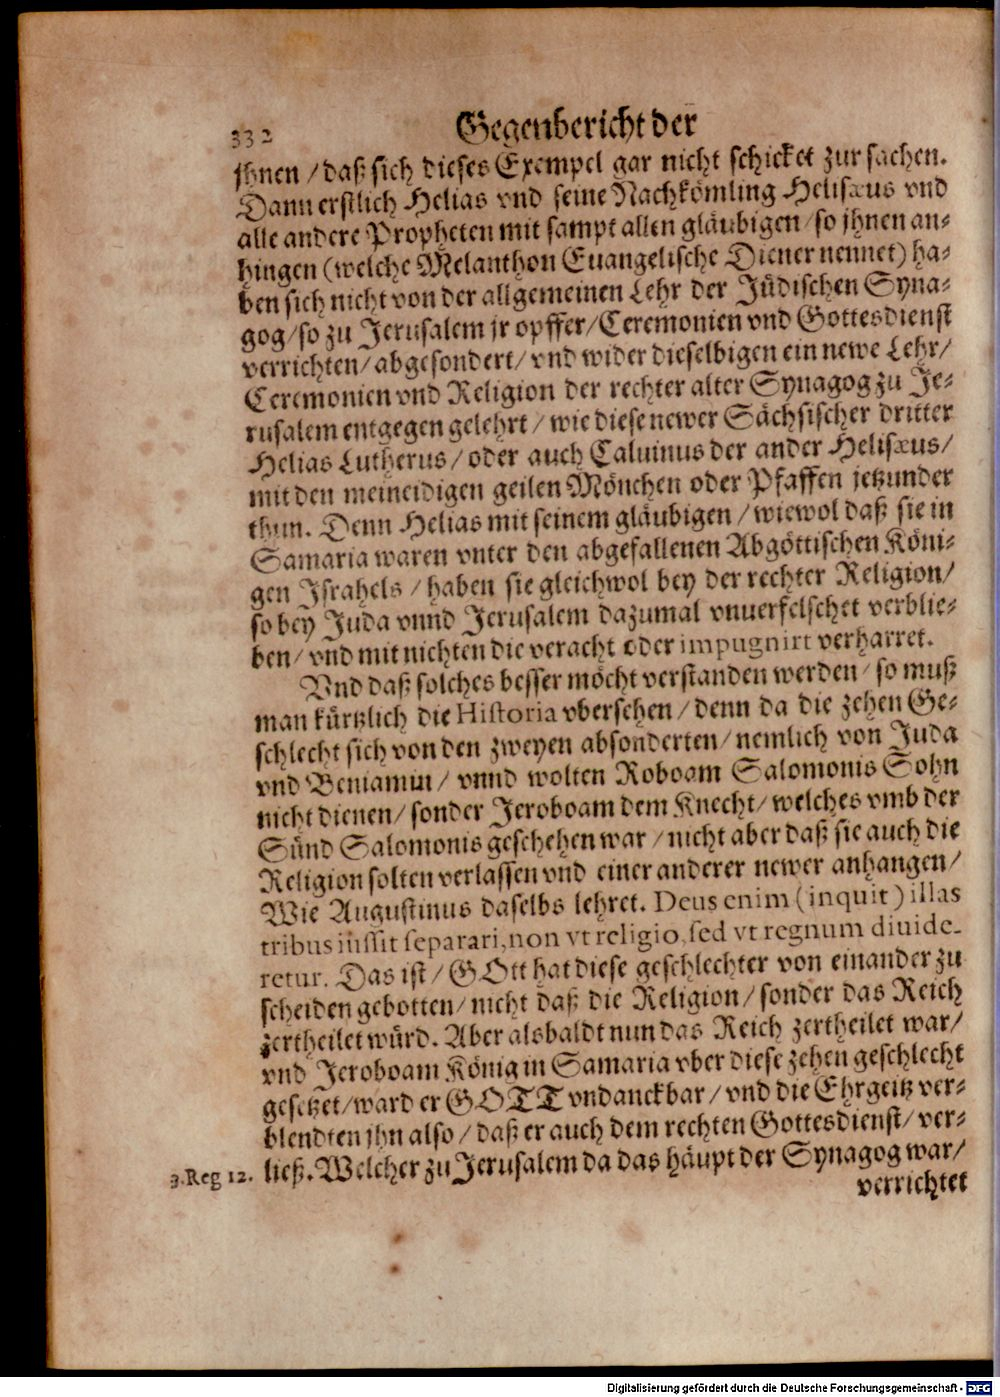 332 Gegenbericht der
jhnen / daß sich dieses Exempel gar nicht schicket zur sachen.
Dann erstlich Helias vnd seine Nachkömling Helisæus vnd
alle andere Propheten mit sampt allen gläubigen / so jhnen an-
hingen (welche Melanthon Euangelische Diener nennet) ha-
ben sich nicht von der allgemeinen Lehr der Jüdischen Syna-
gog / so zu Jerusalem jr opffer / Ceremonien vnd Gottesdienst
verrichten / abgesondert / vnd wider dieselbigen ein newe Lehr /
Ceremonien vnd Religion der rechter alter Synagog zu Je-
rusalem entgegen gelehrt / wie diese newer Sächsischer dritter
Helias Lutherus / oder auch Caluinus der ander Helisæus /
mit den meineidigen geilen Mönchen oder Pfaffen jetzunder
thun. Denn Helias mit seinem gläubigen / wiewol daß sie in
Samaria waren vnter den abgefallenen Abgöttischen Köni-
gen Jsrahels / haben sie gleichwol bey der rechter Religion /
so bey Juda vnnd Jerusalem dazumal vnuerfelschet verblie-
ben / vnd mit nichten die veracht oder impugnirt verharret.
Vnd daß solches besser möcht verstanden werden / so muß
man kürtzlich die Historia vbersehen / denn da die zehen Ge-
schlecht sich von den zweyen absonderten / nemlich von Juda
vnd Beniamin / vnnd wolten Roboam Salomonis Sohn
nicht dienen / sonder Jeroboam dem Knecht / welches vmb der
Sünd Salomonis geschehen war / nicht aber daß sie auch die
Religion solten verlassen vnd einer anderer newer anhangen /
Wie Augustinus daselbs lehret. Deus enim (inquit) illas
tribus iussit separari, non vt religio, sed vt regnum diuide-
retur. Das ist / GOtt hat diese geschlechter von einander zu
scheiden gebotten / nicht daß die Religion / sonder das Reich
zertheilet würd. Aber alsbaldt nun das Reich zertheilet war /
vnd Jeroboam König in Samaria vber diese zehen geschlecht
gesetzet / ward er GOTT vndanckbar / vnd die Ehrgeitz ver-
blendten jhn also / daß er auch dem rechten Gottesdienst / ver-
3. Reg 12. ließ. Welcher zu Jerusalem da das häupt der Synagog war /
verrichtet
Digitalisierung gefördert durch die Deutsche Forschungsgemeinschaft - DFG